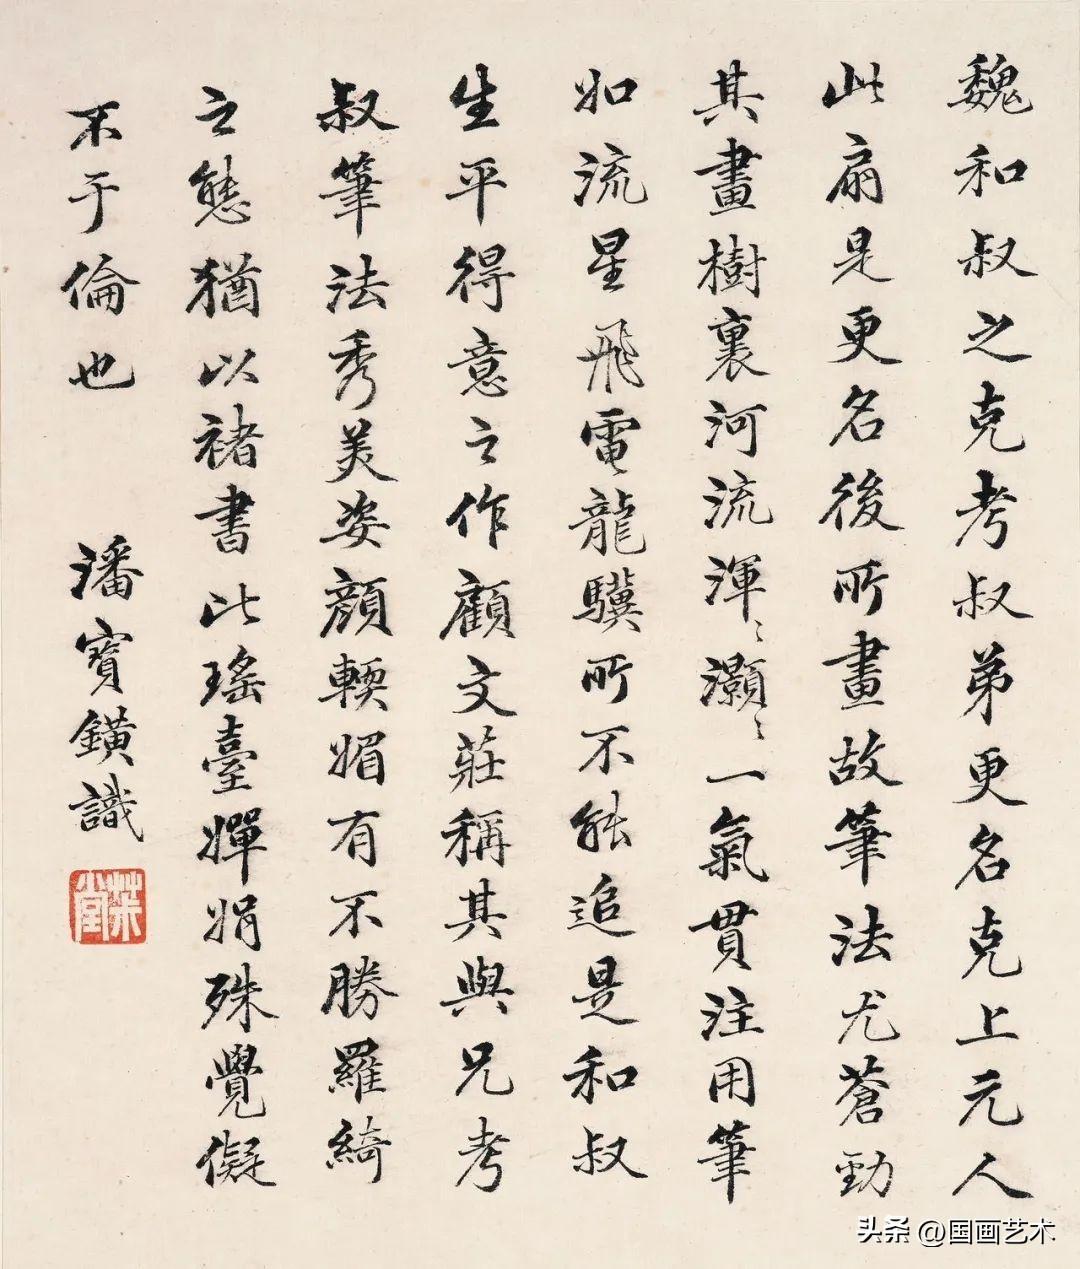 魏和叔之克考叔弟更名克上元人
此扇是更名後所畫故筆法尤蒼勁
其畫樹裏河流渾〻灝〻一氣貫注用筆
如流星飛電龍驥所不能追是和叔
生平得意之作顧文莊稱其與兄考
叔筆法秀美姿顔輭媚有不勝羅綺
之態猶以褚書比瑤臺嬋娟殊覺儗
不于倫也
潘寶鐄識
堂
头条 @国画艺术